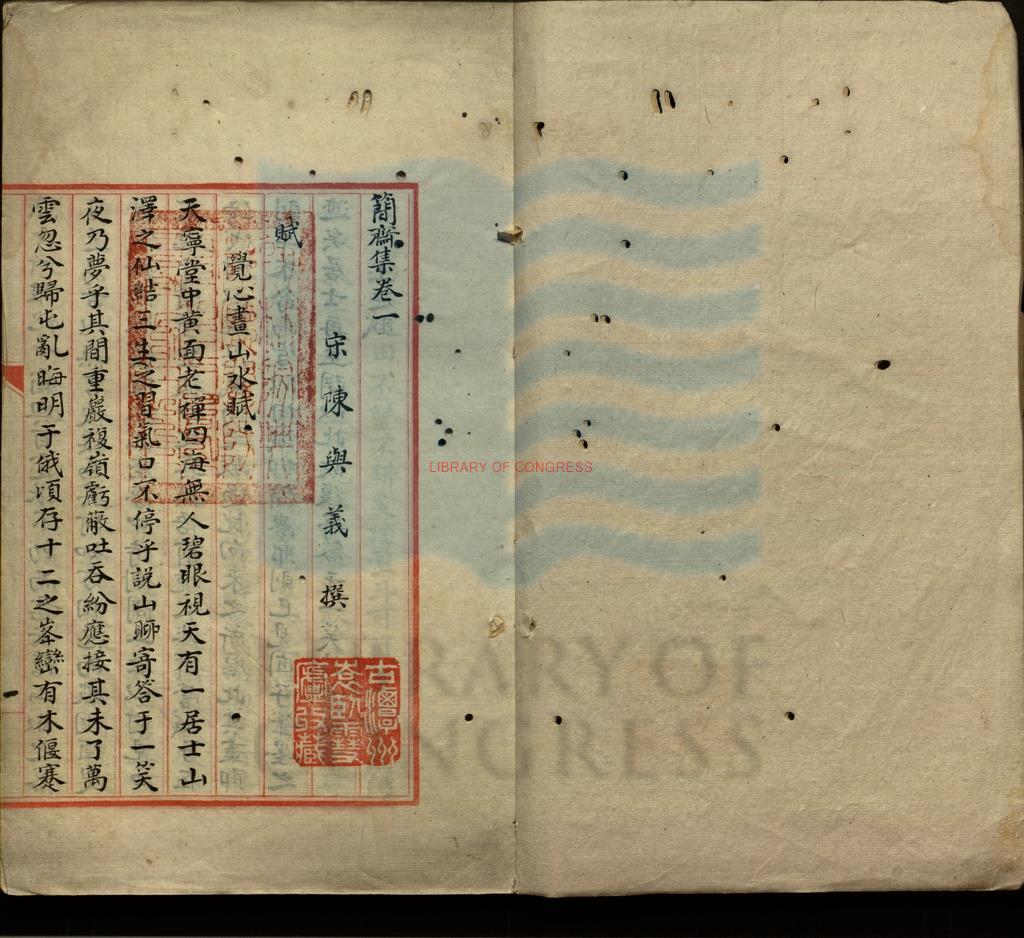 簡齋集卷一
宋 陳與義 撰
賦
覺心畫山水賦
天寧堂中黄面老禪四海無人碧眼視天有一居士山
澤之仙結三生之習氣口不停乎説山聊寄答于一笑
夜乃夢乎其間重巖複嶺虧蔽吐吞紛應接其未了萬
雲忽兮歸屯亂晦明于俄頃存十二之峯巒有木偃蹇
古潭州
袁臥雪
廬收藏
LIBRARY OF CONGRESS